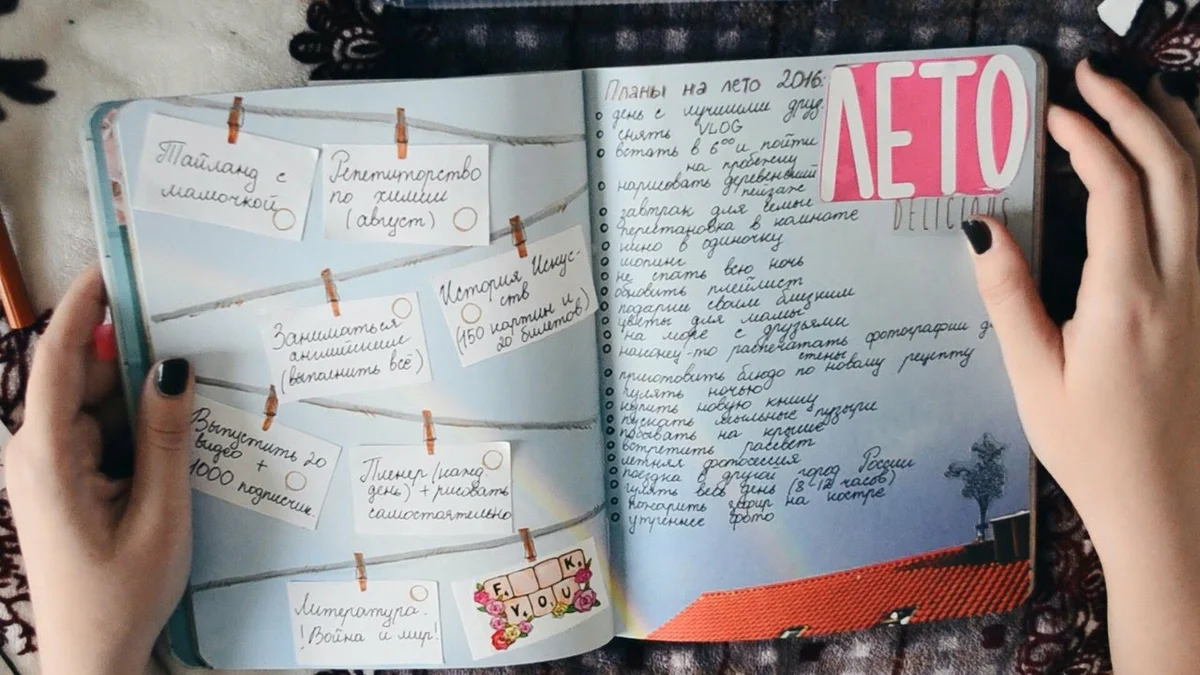 Тайланд с
мамочкой
Репетиторство
по химии
(август)
История Искус-
ств
(150 картин и
20 билетов)
Заниматься
английским
(выполнить всё)
Выпустить 20
видео +
1000 подписчик.
Пленер (канд
день) + рисовать
самостоятельно
Литература.
!Война и мир!
F K
YOU
Планы на лето 2016:
ЛЕТО
DELICIOUS
день с лучшими друз.
снять VLOG
встать в 6⁰⁰ и пойти
на пробежку
нарисовать деревенский
пейзаж
завтрак для семьи
перестановка в комнате
кино в одиночку
шопинг
не спать всю ночь
обновить плейлист
подарие своим близким
цветы для мамы
на море с друзьями
наконец-то распечатать фотографии д-
стены
приготовить блюдо по новому рецепту
гулять ночью
купить новую книгу
пускать мыльные пузыри
побывать на крыше
встретить рассвет
летняя фотосессия
поездка в другой город России
гулять весь день (8-12 часов)
пожарить зефир на костре
утреннее фото